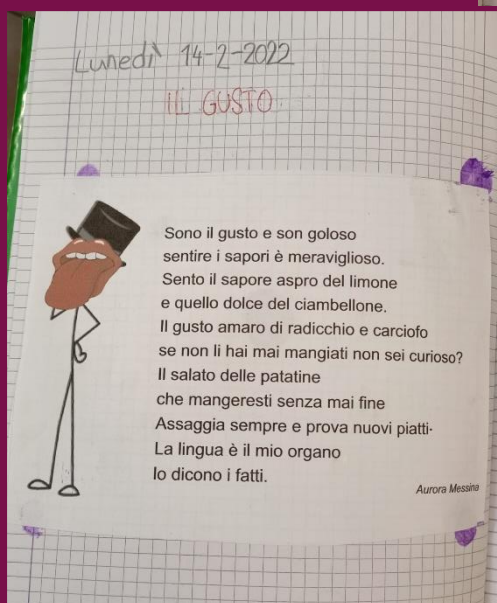 Lunedì 14-2-2022
IL GUSTO
Sono il gusto e son goloso
sentire i sapori è meraviglioso.
Sento il sapore aspro del limone
e quello dolce del ciambellone.
Il gusto amaro di radicchio e carciofo
se non li hai mai mangiati non sei curioso?
Il salato delle patatine
che mangeresti senza mai fine
Assaggia sempre e prova nuovi piatti.
La lingua è il mio organo
lo dicono i fatti.
Aurora Messina